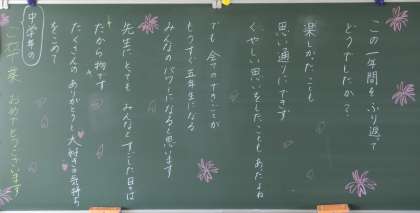 この一年間をふり返って
どうでしたか？
楽しかったことも
思い通りにできず
くやしい思いをしたこともあったよね
でも 全てのできごとが
もうすぐ五年生になる
みんなのパワーになると思います
先生にとっても みんなとすごした日々は
だから物です
たくさんのありがとうと大好きの気持ち
をこめて
中学年の
ご卒業 おめでとうございます